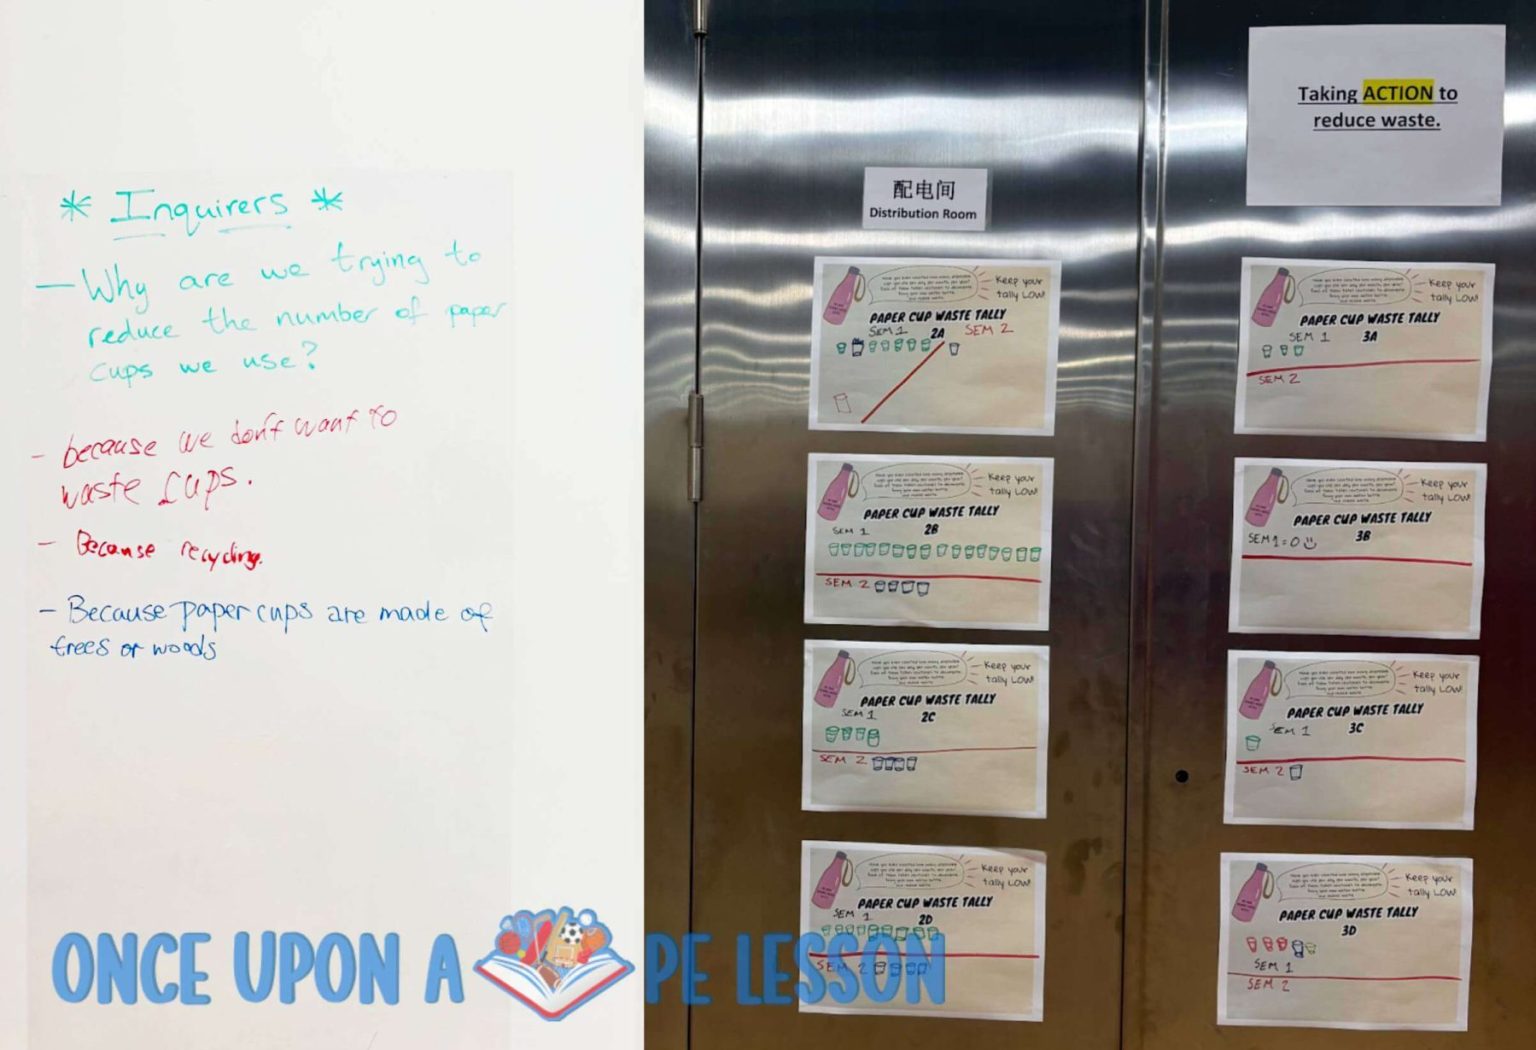 * Inquirers *
– Why are we trying to
reduce the number of paper
cups we use?
- because we don't want to
waste cups.
- Because recycling.
- Because paper cups are made of
trees or woods
Taking ACTION to
reduce waste.
配电间
Distribution Room
Keep your
tally LOW!
PAPER CUP WASTE TALLY
SEM 1 2A SEM 2
Keep your
tally LOW!
PAPER CUP WASTE TALLY
SEM 1 2B
SEM 2
Keep your
tally LOW!
PAPER CUP WASTE TALLY
SEM 1 2C
SEM 2
Keep your
tally LOW!
PAPER CUP WASTE TALLY
SEM 1 2D
SEM 2
Keep your
tally LOW!
PAPER CUP WASTE TALLY
SEM 1 3A
SEM 2
Keep your
tally LOW!
PAPER CUP WASTE TALLY
3B
SEM 1 = 0
Keep your
tally LOW!
PAPER CUP WASTE TALLY
SEM 1 3C
SEM 2
Keep your
tally LOW!
PAPER CUP WASTE TALLY
3D
SEM 1
SEM 2
ONCE UPON A PE LESSON